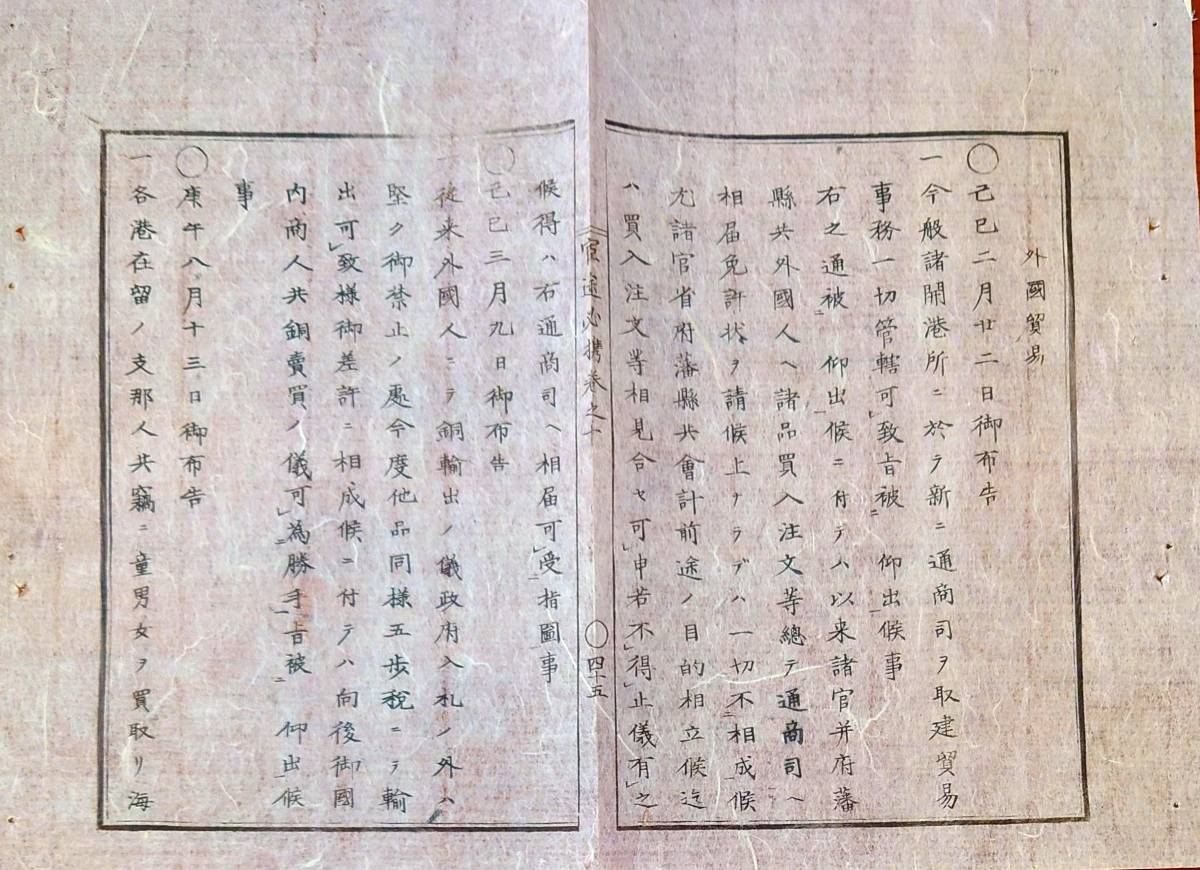 外國貿易
〇己巳二月廿二日御布告
一今般諸開港所ニ於テ新ニ通商司ヲ取建貿易
事務一切管轄可致旨被 仰出候事
右之通被 仰出候ニ付テハ以来諸官并府藩
縣共外國人ヘ諸品買入注文等總テ通商司ヘ
相届免許状ヲ請候上ナラデハ一切不相成候
尤諸官省府藩縣共會計前途ノ目的相立候迄
ハ買入注文等相見合セ可申若不得止儀有之
官途必携巻之十
〇四十五
候得ハ右通商司ヘ相届可受指圖事
〇己巳三月九日御布告
一従来外國人ニテ銅輸出ノ儀政府入札ノ外ハ
堅ク御禁止ノ處今度他品同様五歩税ニテ輸
出可致様御差許ニ相成候ニ付テハ向後御國
内商人共銅賣買ノ儀可為勝手旨被 仰出候
事
〇庚午八月十三日御布告
一各港在留ノ支那人共竊ニ童男女ヲ買取リ海